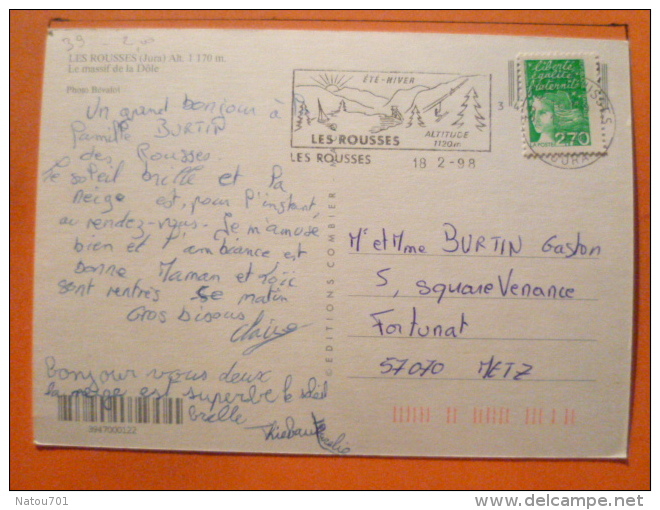 39 - 2,00
LES ROUSSES (Jura) Alt. 1 170 m.
Le massif de la Dôle
Photo Bévalot
Un grand bonjour à la
famille BURTIN
des Rousses.
le soleil brille et la
neige est, pour l'instant,
au rendez-vous. Je m'amuse
bien et l'ambiance est
bonne Maman et Loïc
sont rentrés ce matin
Gros bisous
Claire
Bonjour vous deux
la neige est superbe le soleil
brille
Thiebaut
3947000122
EDITIONS COMBIER
ÉTÉ-HIVER
LES ROUSSES
ALTITUDE
1120m
LES ROUSSES
18 2-98
liberté
égalité
fraternité
LA POSTE
2,70
JURA
Mr et Mme BURTIN Gaston
5, square Venance
Fortunat
57070 METZ
Natou701
delcampe.net